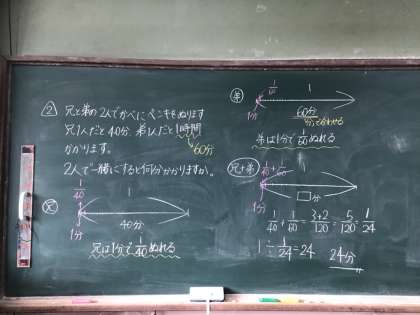 ② 兄と弟の2人でかべにペンキをぬります
兄1人だと40分、弟1人だと1時間
→60分
かかります。
2人で一緒にすると何分かかりますか。
兄
1/40
1
1分
40分
兄は1分で1/40ぬれる
弟
1/60
1
1分
60分
分で合わせる
弟は1分で1/60ぬれる
兄+弟
1/40+1/60
1
1分
□分
1/40+1/60=3+2/120=5/120=1/24
1÷1/24=24
24分